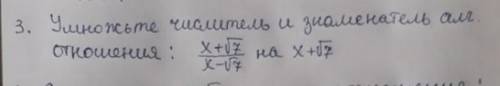 3. Умножьте числитель и знаменатель алг.
отношения: \frac{x+\sqrt{7}}{x-\sqrt{7}} на x+√7